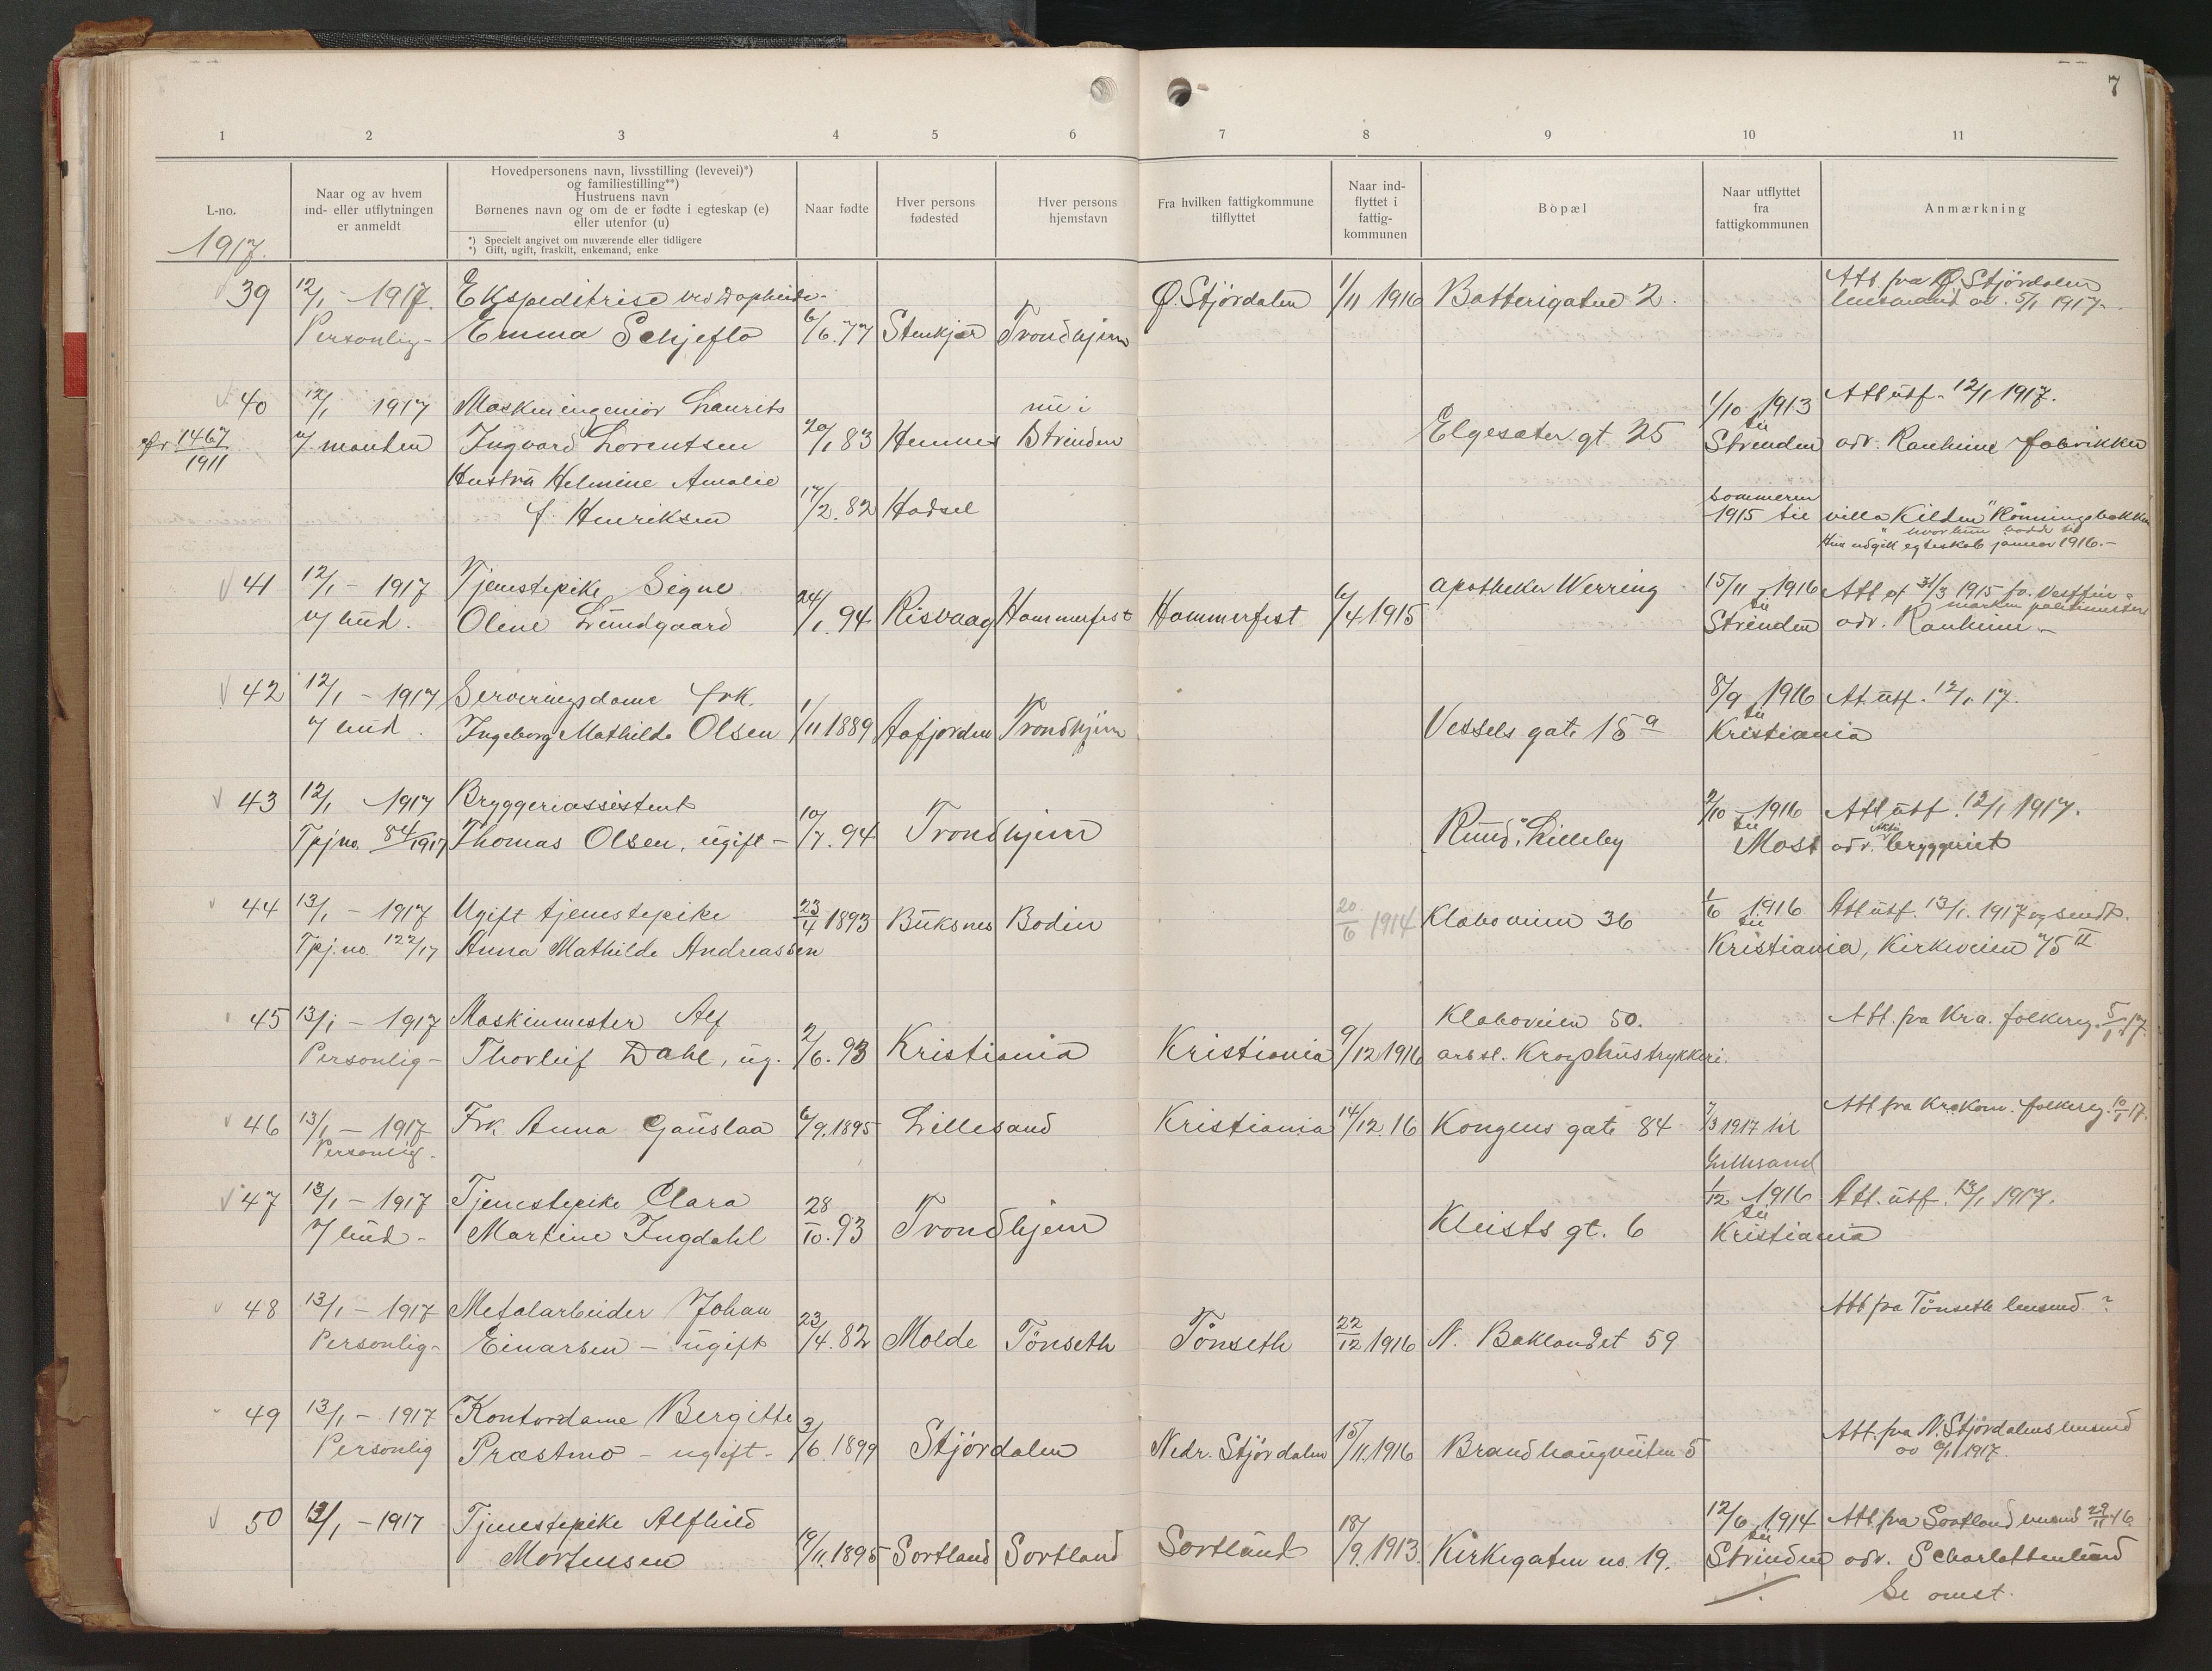 7
1 2 3 4 5 6 7 8 9 10 11
L-no.
1917.
Naar og av hvem
ind- eller utflytningen
er anmeldt
Hovedpersonens navn, livsstilling (levevei)*)
og familiestilling**)
Hustruens navn
Børnenes navn og om de er fødte i egteskap (e)
eller utenfor (u)
*) Specielt angivet om nuværende eller tidligere
*) Gift, ugift, fraskilt, enkemand, enke
Naar fødte
Hver persons
fødested
Hver persons
hjemstavn
Fra hvilken fattigkommune
tilflyttet
Naar ind-
flyttet i
fattig-
kommunen
Bopæl
Naar utflyttet
fra
fattigkommunen
Anmærkning
39 12/1 - 1917. Ekspeditrise ved Ø. Stjördalen 1/11 1916 Batterigaten 2. Att. fra Ø. Stjördalen
Personlig- Emma Schjeflo 6/6.77 Stenkjær Trondhjem lensmand av. 5/1 1917.
40 12/1 1917 Maskiningeniør Laurits nu i 1/10 1913 Att utf. 12/1 1917.
fr 1467/1911 v/ manden Ingvard Lorentsen 20/1 83 Hemnes Strinden Elgesæter gt. 25 til Strinden adr. Ranheim fabrikker
Hustru Helmine Amalie
f. Henriksen 17/2.82 Hadsel Sommeren 1915 til villa "Kilden" Rønningsbakken
hvor hun hadde sit
Hun indgik egteskab januar 1916.-
41 12/1 - 1917 Tjenestepike Signe apotheker Werring 15/11 - 1916 Att. af 31/3 1915 fr. Vestfin-
markens politimester
v/ bud. Olene Lundgaard 24/1.94 Risvaag Hammerfest Hammerfest 6/4 1915 til Strinden adr. Ranheim.-
42 12/1 - 1917 Serveringsdame frk. 8/9 1916 At. utf. 12/1.17.
v/ bud. Ingeborg Mathilde Olsen 1/11 1889 Aafjorden Trondhjem Vessels gate 15 a til Kristiania
43 12/1 1917 Bryggeriassistent 2/10 - 1916 Att utf. 12/1 1917.
Tpj no. 84/1917 Thomas Olsen, ugift - 10/7.94 Trondhjem Ruud, Lilleby til Moss adr. Aktie bryggeriet
44 13/1 - 1917 Ugift tjenestepike 23/4 1893 Buksnes Bodin 20/6 1914 Klæboveien 36 1/6 1916 Att utf. 13/1. 1917 og sendt.
Tpj. no. 122/17 Anna Mathilde Andreassen til Kristiania, Kirkeveien 75 II
45 13/1 - 1917 Maskinmester Alf Klæboveien 50. Att. fra Kra. folkereg. 5/1 17.
Personlig- Thorleif Dahl, ug. 2/6.93 Kristiania Kristiania 9/12 1916 arb.st. Kroghus trykkeri.
46 13/1 - 1917 Frk. Anna Gauslaa 6/9.1895 Lillesand Kristiania 14/12.16 Kongens gate 84 7/3 1917 til Att fra Kra kom. folkereg. 10/1 17.
Personlig. Lillesand
47 13/1 - 1917 Tjenestepike Clara 28/10.93 Trondhjem 1/12 1916 Att. utf. 13/1 1917.
v/ bud- Martine Ingdahl Kleists gt. 6 til Kristiania
48 13/1 - 1917 Metalarbeider Johan Att fra Tönseth lensmd. ?
Personlig- Einarsen - ugift 23/4.82 Molde Tönseth Tönseth 22/12 1916 N. Baklandet 59
49 13/1 - 1917 Kontordame Bergitte Att. fra N. Stjørdalens lensmd
Personlig Præstmo - ugift- 3/6.1899 Stjördalen Nedr. Stjördalen 15/11.1916 Brandhaugveiten 5 av 9/1 1917.
50 13/1 - 1917 Tjenestepike Alfhild 12/6 1914 Att. fra Sortland lensmd 29/11 16.
Mortensen 19/11.1895 Sortland Sortland Sortland 18/9.1913. Kirkegaten no. 19. til Strinden adr. Scharlottenlund
Se omst.